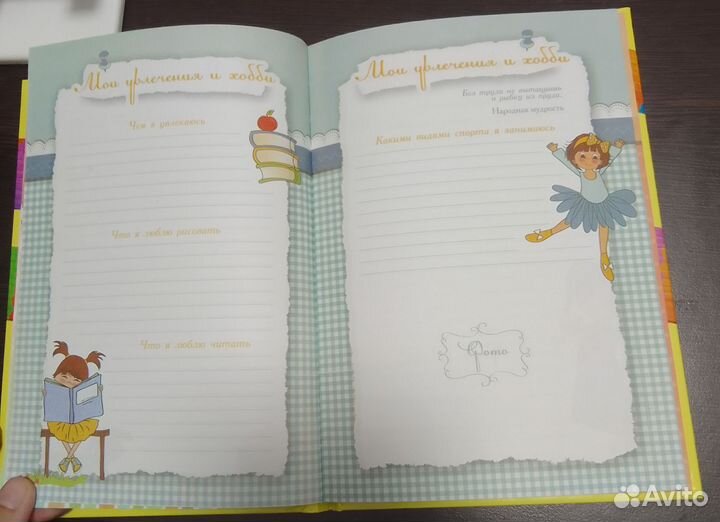 Мои увлечения и хобби
Чем я увлекаюсь
Что я люблю рисовать
Что я люблю читать
Мои увлечения и хобби
Без труда не вытащишь
и рыбку из пруда.
Народная мудрость
Какими видами спорта я занимаюсь
Фото
Avito